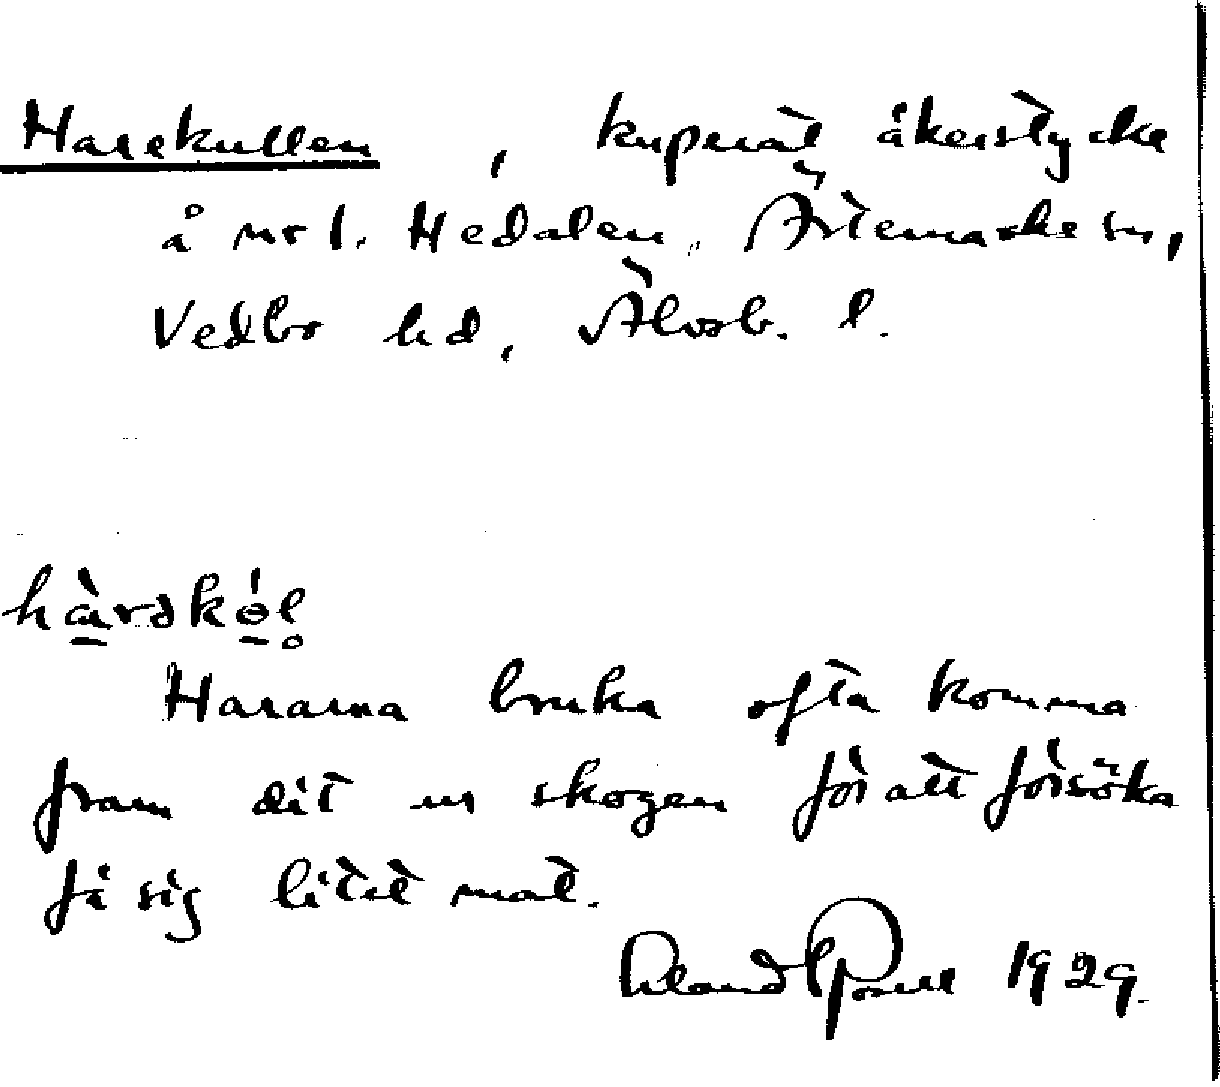 Harekullen, kuperat åkerstycke
å nr 1. Hedalen, Ärtemarke sn,
Vedbo hd, Älvsb. l.
hàrskǿl̥
Hararna bruka ofta komma
fram dit ur skogen för att försöka
få sig litet mat.
1929.